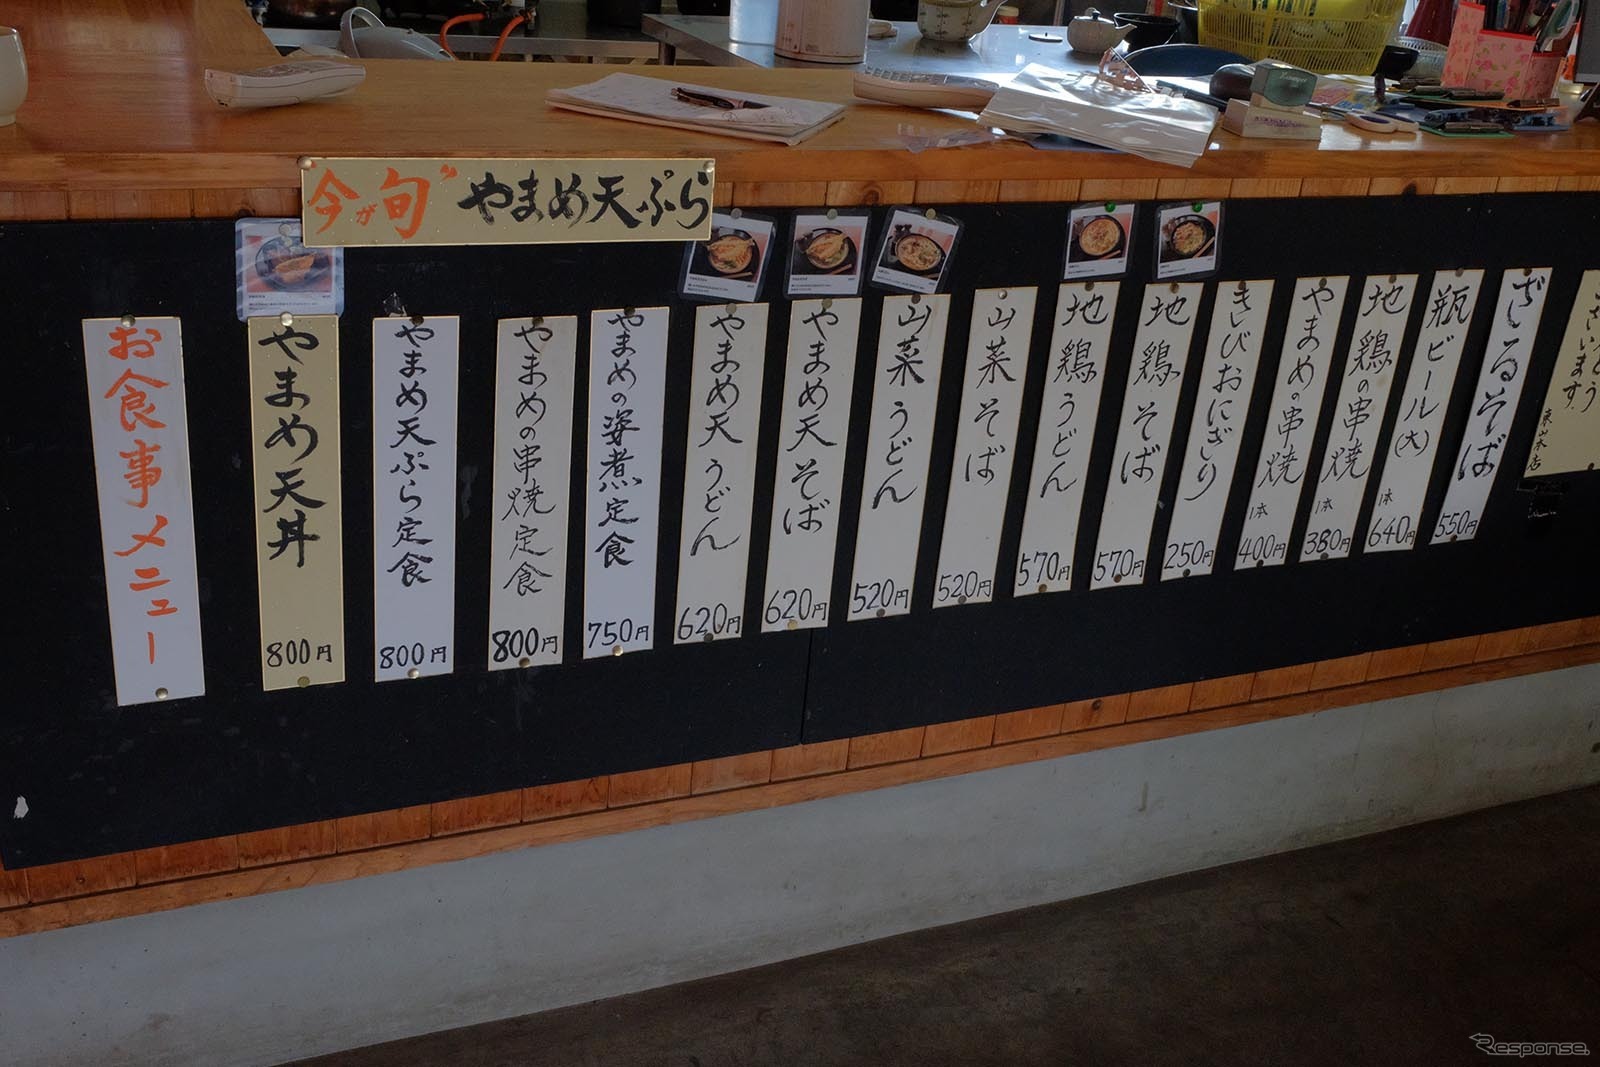 "今が旬" やまめ天ぷら
お食事メニュー
やまめ天丼 800円
やまめ天ぷら定食 800円
やまめの串焼定食 800円
やまめの姿煮定食 750円
やまめ天うどん 620円
やまめ天そば 620円
山菜うどん 520円
山菜そば 520円
地鶏うどん 570円
地鶏そば 570円
きびおにぎり 250円
やまめの串焼 1本 400円
地鶏の串焼 1本 380円
瓶ビール(大) 1本 640円
ざるそば 550円
ざいます。
東山本店
Response.